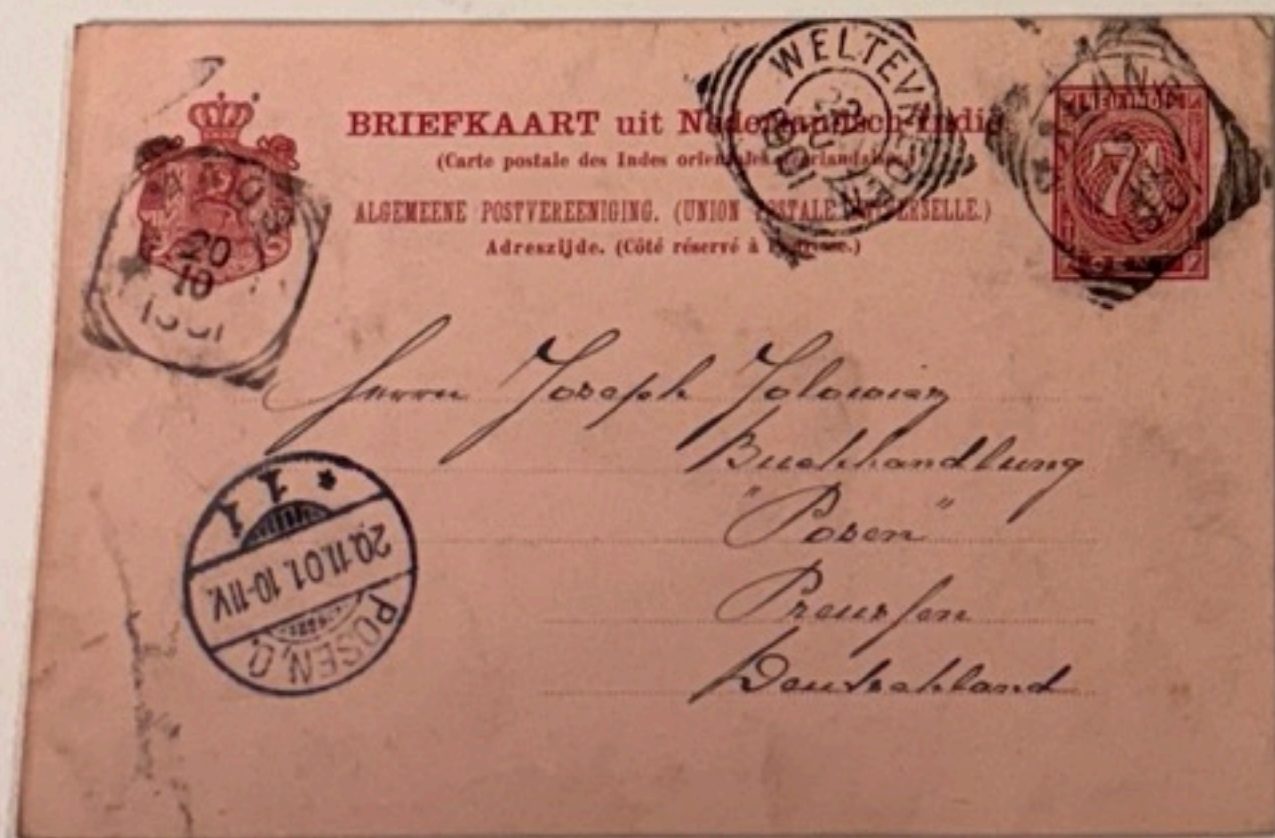 BRIEFKAART uit Nederlandsch-Indië
(Carte postale des Indes orientales néerlandaises.)
ALGEMEENE POSTVEREENIGING. (UNION POSTALE UNIVERSELLE.)
Adreszijde. (Côté réservé à l'adresse.)
WELTEVREDEN
1901
7½
20
10
1901
Herrn Joseph Jolowicz
Buchhandlung
"Posen"
Preussen
Deutschland
* 1 1
20.11.01. 10-11V.
POSEN. O.